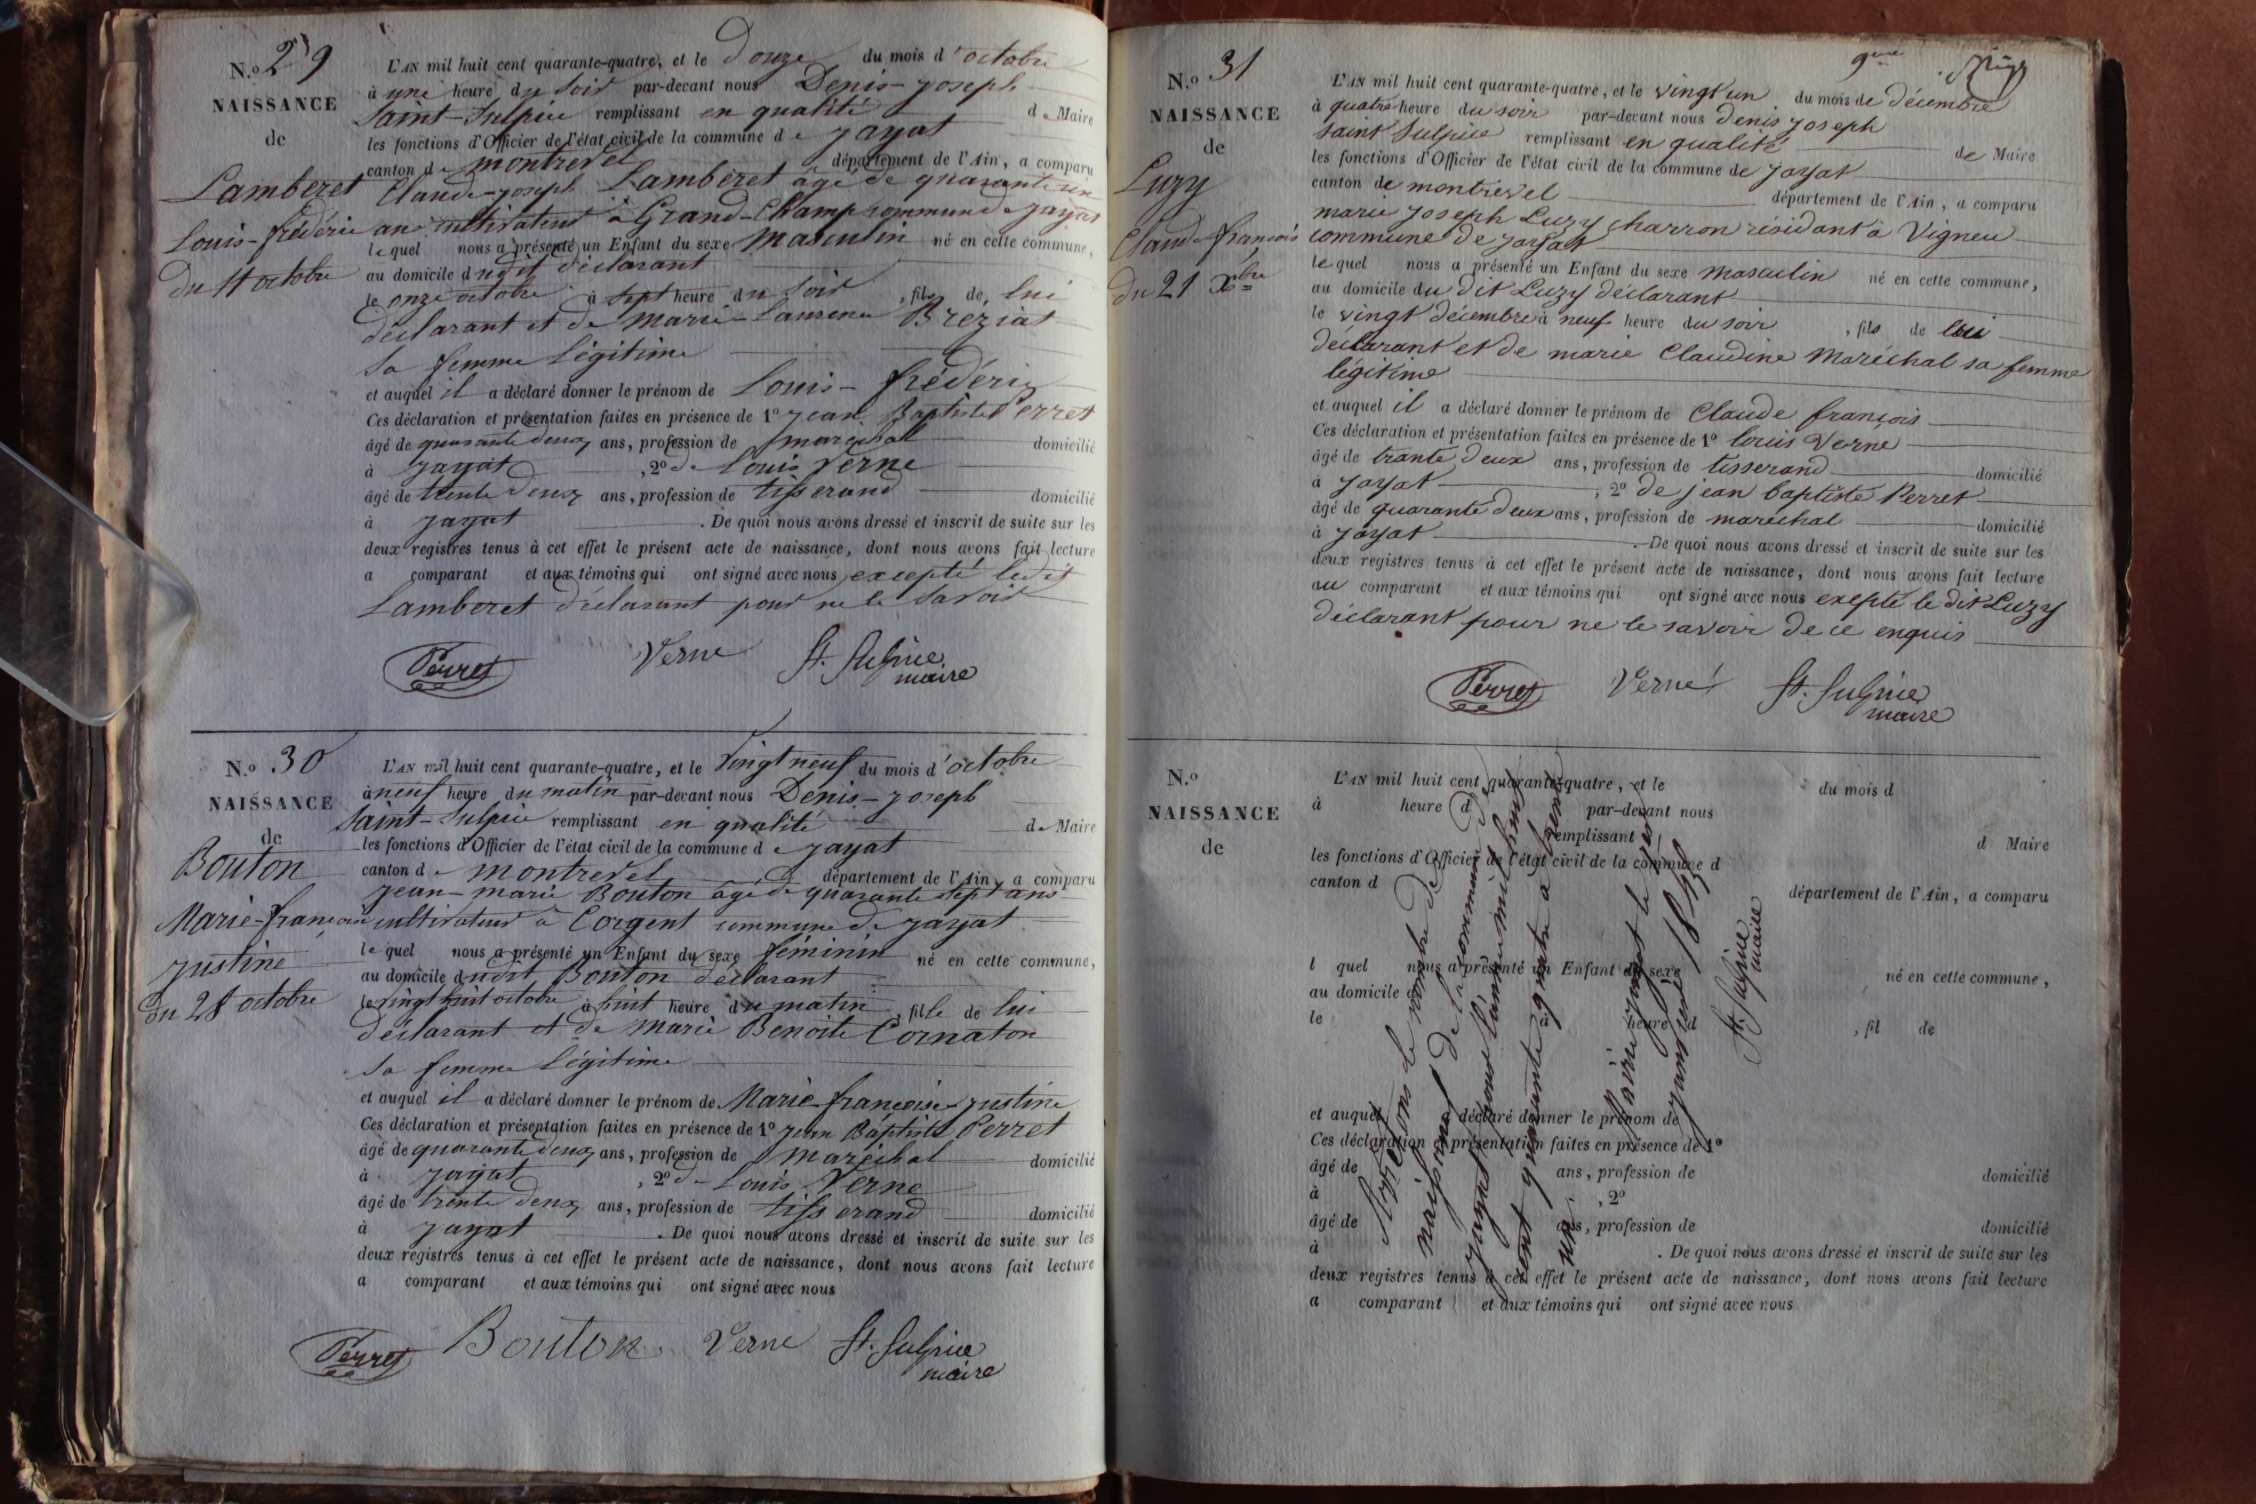 N.º 29
NAISSANCE
de
Lamberet
Louis-frédéric
du 11 octobre
L'AN mil huit cent quarante-quatre, et le Douze du mois d'octobre
à une heure du soir par-devant nous Denis-joseph
Saint-Sulpice remplissant en qualité de Maire
les fonctions d'Officier de l'état civil de la commune de jayat
canton de montrevel département de l'Ain, a comparu
Claude-joseph Lamberet âgé de quarante un
ans cultivateur à Grand-Champ commune de jayat
le quel nous a présenté un Enfant du sexe masculin né en cette commune,
au domicile dudit déclarant
le onze octobre à sept heure du soir, fils de lui
déclarant et de marie-Laurence Breziat
sa femme légitime
et auquel il a déclaré donner le prénom de Louis-frédéric
Ces déclaration et présentation faites en présence de 1º jean Baptiste Perret
âgé de quarante deux ans, profession de maréchal domicilié
à jayat, 2º de Louis Verne
âgé de trente deux ans, profession de tisserand domicilié
à jayat. De quoi nous avons dressé et inscrit de suite sur les
deux registres tenus à cet effet le présent acte de naissance, dont nous avons fait lecture
a comparant et aux témoins qui ont signé avec nous excepté ledit
Lamberet déclarant pour ne le savoir
Perret Verne St. Sulpice
maire
N.º 30
NAISSANCE
de
Bouton
Marie-françoise
justine
du 28 octobre
L'AN mil huit cent quarante-quatre, et le Vingt neuf du mois d'octobre
à neuf heure du matin par-devant nous Denis-joseph
Saint-Sulpice remplissant en qualité de Maire
les fonctions d'Officier de l'état civil de la commune de jayat
canton de montrevel département de l'Ain, a comparu
jean-marie Bouton âgé de quarante sept ans
cultivateur à Corgent commune de jayat
le quel nous a présenté un Enfant du sexe féminin né en cette commune,
au domicile dudit Bouton déclarant
le vingt huit octobre à huit heure du matin, fille de lui
déclarant et de marie Benoite Cornaton
sa femme légitime
et auquel il a déclaré donner le prénom de Marie-françoise justine
Ces déclaration et présentation faites en présence de 1º jean Baptiste Perret
âgé de quarante deux ans, profession de maréchal domicilié
à jayat, 2º de Louis Verne
âgé de trente deux ans, profession de tisserand domicilié
à jayat. De quoi nous avons dressé et inscrit de suite sur les
deux registres tenus à cet effet le présent acte de naissance, dont nous avons fait lecture
a comparant et aux témoins qui ont signé avec nous
Perret Bouton Verne St. Sulpice
maire
N.º 31
NAISSANCE
de
Luzy
Claude françois
du 21 Xbre
L'AN mil huit cent quarante-quatre, et le vingt un du mois de décembre
à quatre heure du soir par-devant nous denis joseph
saint Sulpice remplissant en qualité de Maire
les fonctions d'Officier de l'état civil de la commune de jayat
canton de montrevel département de l'Ain, a comparu
marie joseph Luzy charron résidant à Vigneu
commune de jayat
le quel nous a présenté un Enfant du sexe masculin né en cette commune,
au domicile du dit Luzy déclarant
le vingt décembre à neuf heure du soir, fils de lui
déclarant et de marie Claudine maréchal sa femme
légitime
et auquel il a déclaré donner le prénom de Claude françois
Ces déclaration et présentation faites en présence de 1º louis Verne
âgé de trante deux ans, profession de tisserand domicilié
à jayat, 2º de jean baptiste Perret
âgé de quarante deux ans, profession de maréchal domicilié
à jayat. De quoi nous avons dressé et inscrit de suite sur les
deux registres tenus à cet effet le présent acte de naissance, dont nous avons fait lecture
au comparant et aux témoins qui ont signé avec nous exepté le dit Luzy
déclarant pour ne le savoir de ce enquis
Perret Verne St. Sulpice
maire
N.º
NAISSANCE
de
L'AN mil huit cent quarante-quatre, et le du mois d
à heure d par-devant nous
remplissant d Maire
les fonctions d'Officier de l'état civil de la commune d
canton d département de l'Ain, a comparu
l quel nous a présenté un Enfant du sexe né en cette commune,
au domicile d
le à heure d, fil de
et auquel a déclaré donner le prénom de
Ces déclaration et présentation faites en présence de 1º
âgé de ans, profession de domicilié
à, 2º
âgé de ans, profession de domicilié
à. De quoi nous avons dressé et inscrit de suite sur les
deux registres tenus à cet effet le présent acte de naissance, dont nous avons fait lecture
a comparant et aux témoins qui ont signé avec nous
le nombre de
naissances de la commune de
jayat pour l'année mil huit
cent quarante quatre à trente
un. Mairie jayat le 1er
janvier 1845
St. Sulpice
maire